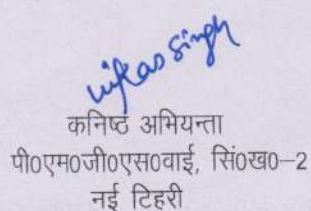 vikas singh
कनिष्ठ अभियन्ता
पी0एम0जी0एस0वाई, सिं0ख0–2
नई टिहरी